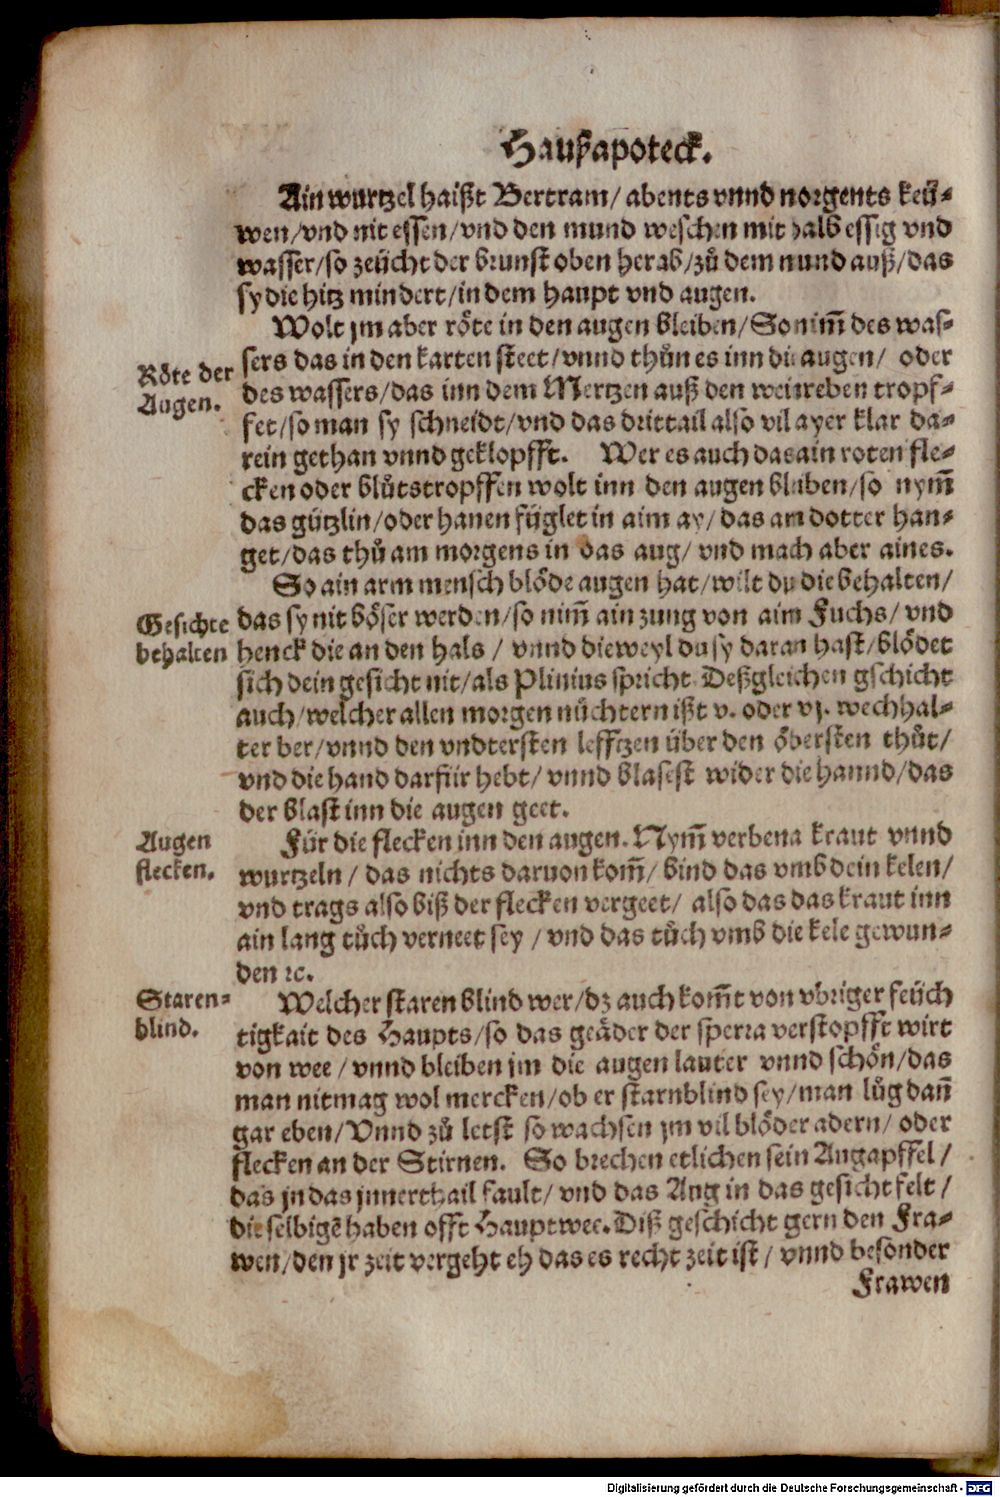 Haußapoteck.
Ain wurtzel haißt Bertram/ abents vnnd norgents keü⸗
wen/vnd nit essen/vnd den mund weschen mit halb essig vnd
wasser/so zeücht der brunst oben herab/zů dem nund auß/das
sy die hitz mindert/in dem haupt vnd augen.
Wolt jm aber röte in den augen bleiben/So nim̃ des was⸗
Röte der
Augen.
sers das in den karten steet/vnnd thůn es inn die augen/ oder
des wassers/das inn dem Mertzen auß den weinreben tropf⸗
fet/so man sy schneidt/vnd das drittail also vil ayer klar da⸗
rein gethan vnnd geklopfft. Wer es auch das ain roten fle⸗
cken oder blůtstropffen wolt inn den augen bleiben/so nym̃
das gützlin/oder hanen füglet in aim ay/das am dotter han⸗
get/das thů am morgens in das aug/ vnd mach aber aines.
So ain arm mensch blöde augen hat/wilt du die behalten/
Gesichte
behalten
das sy nit böser werden/so nim̃ ain zung von aim Fuchs/ vnd
henck die an den hals / vnnd dieweyl du sy daran hast/blödet
sich dein gesicht nit/als Plinius spricht. Deßgleichen gschicht
auch/welcher allen morgen nüchtern ißt v. oder vj. wechhal⸗
ter ber/vnnd den vndtersten lefftzen über den öbersten thůt/
vnd die hand darfür hebt/ vnnd blasest wider die hannd/das
der blast inn die augen geet.
Augen
flecken.
Für die flecken inn den augen. Nym̃ verbena kraut vnnd
wurtzeln / das nichts daruon kom̃/ bind das vmb dein kelen/
vnd trags also biß der flecken vergeet/ also das das kraut inn
ain lang tůch verneet sey / vnd das tůch vmb die kele gewun⸗
den ⁊c.
Staren⸗
blind.
Welcher staren blind wer/dz auch kom̃t von vbriger feüch
tigkait des Haupts/so das geäder der sperra verstopfft wirt
von wee / vnnd bleiben jm die augen lauter vnnd schön/das
man nit mag wol mercken/ob er starnblind sey/man lůg dañ
gar eben/Vnnd zů letst so wachsen jm vil blöder adern/ oder
flecken an der Stirnen. So brechen etlichen sein Augapffel /
das jn das jnnerthail fault/ vnd das Aug in das gesicht felt /
die selbigẽ haben offt Hauptwee. Diß geschicht gern den Fra⸗
wen/den jr zeit vergeht eh das es recht zeit ist / vnnd besonder
Frawen
Digitalisierung gefördert durch die Deutsche Forschungsgemeinschaft - DFG